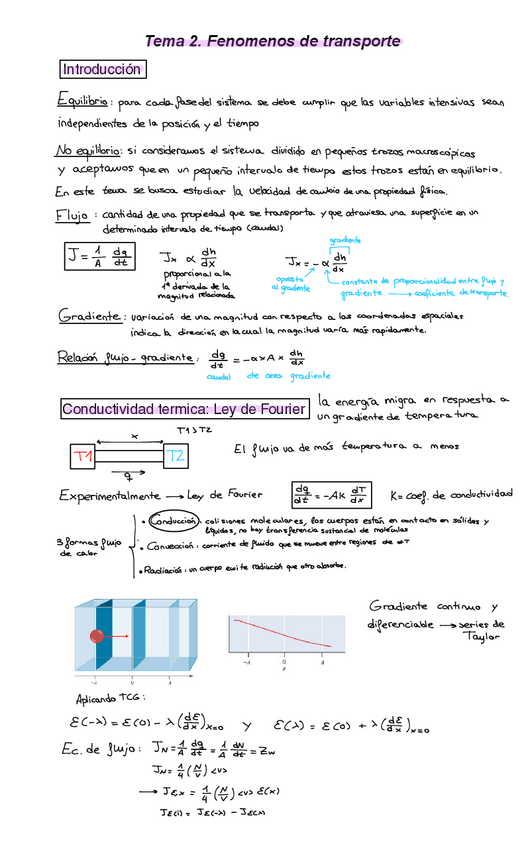 Tema 2. Fenomenos de transporte
Introducción
Equilibrio: para cada fase del sistema se debe cumplir que las variables intensivas sean
independientes de la posición y el tiempo
No equilibrio: si consideramos el sistema dividido en pequeños trozos macroscópicos
y aceptamos que en un pequeño intervalo de tiempo estos trozos están en equilibrio.
En este tema se busca estudiar la velocidad de cambio de una propiedad física.
Flujo: cantidad de una propiedad que se transporta y que atraviesa una superficie en un
determinado intervalo de tiempo (caudal)
gradiente
J = 1/A dq/dt
Jx ∝ dh/dx
Jx = -α dh/dx
proporcional a la
1ª derivada de la
magnitud relacionada
opuesto
al gradiente
constante de proporcionalidad entre flujo y
gradiente → coeficiente de transporte
Gradiente: variación de una magnitud con respecto a las coordenadas espaciales
indica la dirección en la cual la magnitud varía más rapidamente.
Relación flujo-gradiente: dq/dt = -α × A × dh/dx
caudal cte area gradiente
Conductividad termica: Ley de Fourier
la energía migra en respuesta a
un gradiente de temperatura
T1>T2
x
T1 T2
q
El flujo va de más temperatura a menos
Experimentalmente → Ley de Fourier dq/dt = -AK dT/dx K= coef. de conductividad
3 formas flujo
de calor
• Conducción: colisiones moleculares, los cuerpos están en contacto en sólidos y
líquidos, no hay transferencia sustancial de moléculas
• Convección: corriente de fluido que se mueve entre regiones de ≠T
• Radiación: un cuerpo emite radiación que otro absorbe.
Gradiente continuo y
diferenciable → series de
Taylor
-λ 0 λ
-λ 0 λ
x
Aplicando TCG:
Ɛ(-λ) = Ɛ(0) - λ(dƐ/dx)x=0 y Ɛ(λ) = Ɛ(0) + λ(dƐ/dx)x=0
Ec. de flujo: JN = 1/A dq/dt = 1/A dN/dt = Zw
JN = 1/4 (N/V) <v>
→ JƐx = 1/4 (N/V) <v> Ɛ(x)
JƐ(i) = JƐ(-λ) - JƐ(λ)